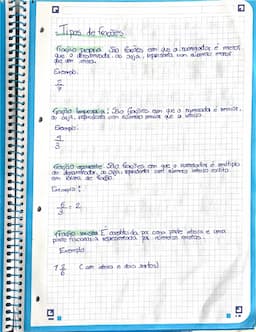 Tipos de frações
Fração própria: São frações em que o numerador é menor
que o denominador, ou seja, representa um número menor
do que um inteiro.
Exemplo:
2
7
Fração imprópria: São frações em que o numerador é maior,
ou seja, representa um número maior que o inteiro.
Exemplo:
4
3
Fração aparente: São frações em que o numerador é múltiplo
do denominador, ou seja, representa um número inteiro escrito
em forma de fração.
Exemplo:
6
3 = 2
Fração mista: É constituída por uma parte inteira e uma
parte fracionária representada por números mistos.
Exemplo
1 2
6 (um inteiro e dois sextos)